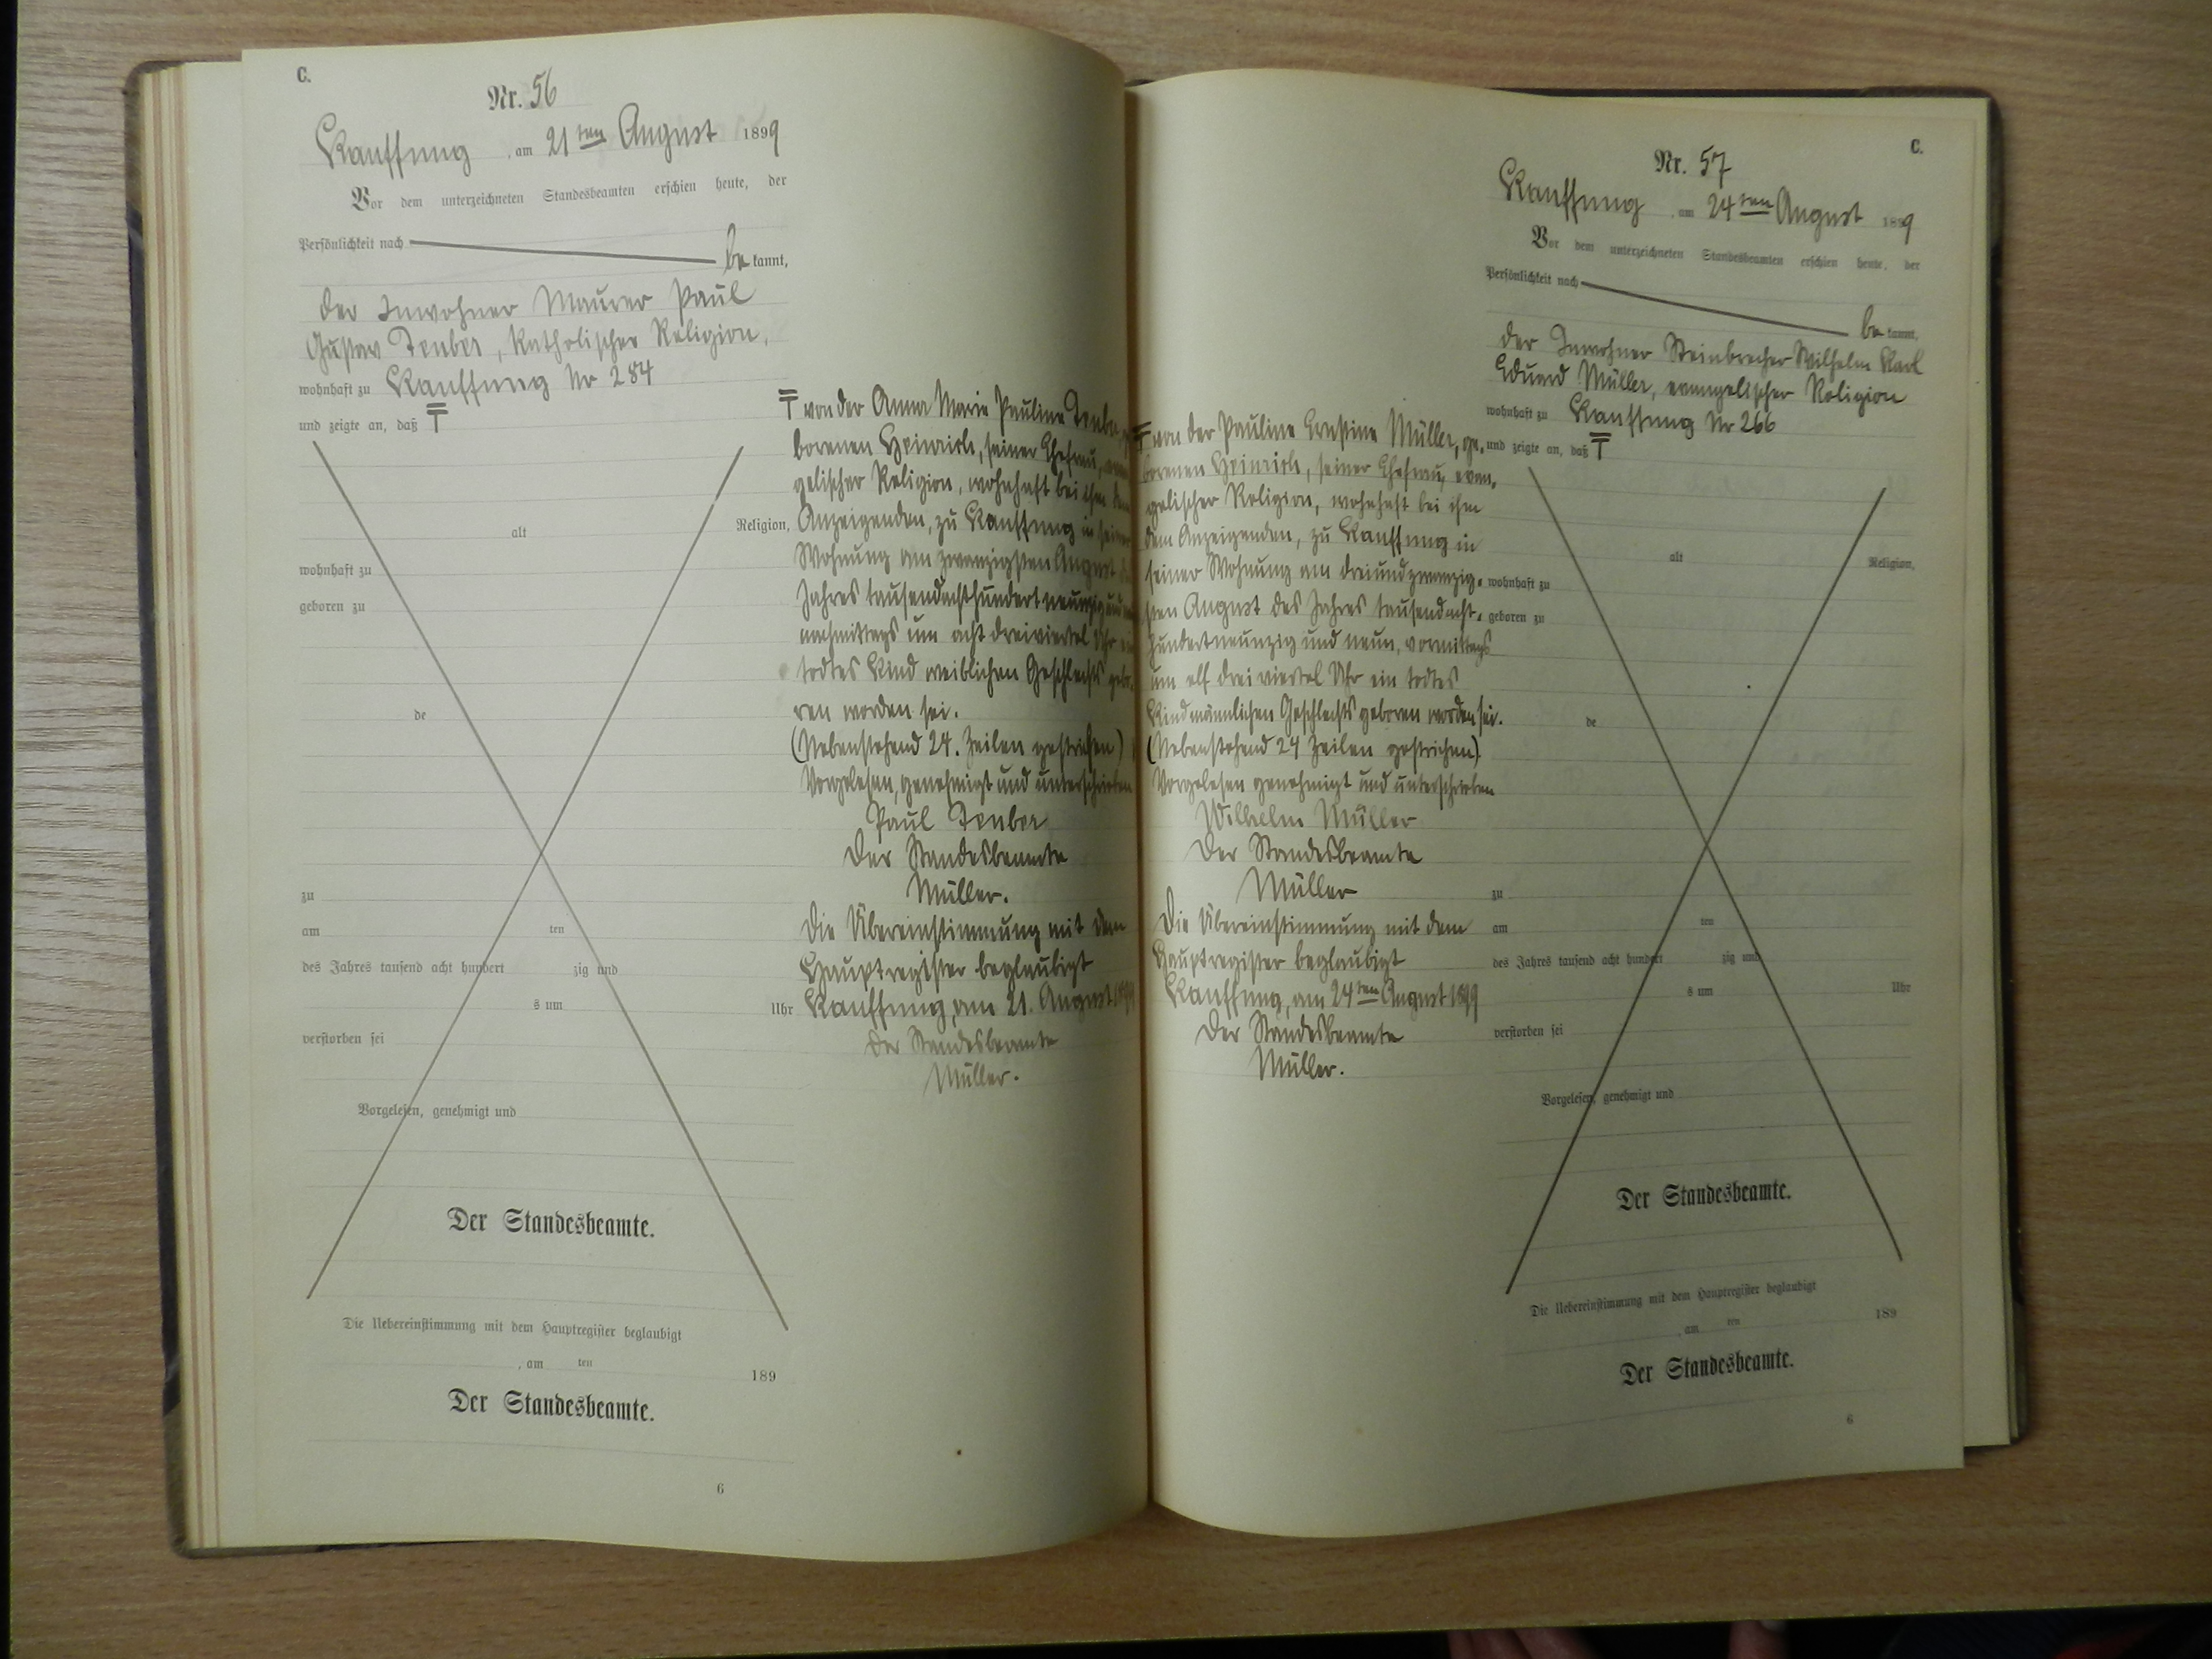 C.
Nr. 56
Kauffung, am 21ten August 1899
Vor dem unterzeichneten Standesbeamten erschien heute, der
Persönlichkeit nach
be kannt,
der Inwohner Maurer Paul
Gustav Teuber, katholischer Religion,
wohnhaft zu Kauffung Nr 284
und zeigte an, daß
alt Religion,
wohnhaft zu
geboren zu
de
zu
am ten
des Jahres tausend acht hundert zig und
s um Uhr
verstorben sei
Vorgelesen, genehmigt und
Der Standesbeamte.
Die Uebereinstimmung mit dem Hauptregister beglaubigt
, am ten 189
Der Standesbeamte.
6
von der Anna Marie Pauline Teuber,
borenen Heinrich, seiner Ehefrau,
gelischer Religion, wohnhaft bei ihm dem
Anzeigenden, zu Kauffung in seiner
Wohnung am zwanzigsten August
Jahres tausendachthundert neunzig und
nachmittags um acht dreiviertel Uhr ein
todtes Kind weiblichen Geschlechts gebo-
ren worden sei.
(Nebenstehend 24. Zeilen gestrichen)
Vorgelesen, genehmigt und unterschrieben
Paul Teuber
Der Standesbeamte
Müller.
Die Übereinstimmung mit dem
Hauptregister beglaubigt
Kauffung, am 21. August 1899
Der Standesbeamte
Müller.
von der Pauline Ernstine Müller, ge-
borenen Heinrich, seiner Ehefrau, evan-
gelischer Religion, wohnhaft bei ihm
dem Anzeigenden, zu Kauffung in
seiner Wohnung am dreiundzwanzig-
sten August des Jahres tausendacht-
hundertneunzig und neun, vormittags
um elf dreiviertel Uhr ein todtes
Kind männlichen Geschlechts geboren worden sei.
(Nebenstehend 24 Zeilen gestrichen)
Vorgelesen genehmigt und unterschrieben
Wilhelm Müller
Der Standesbeamte
Müller
Die Übereinstimmung mit dem
Hauptregister beglaubigt
Kauffung, am 24ten August 1899
Der Standesbeamte
Müller.
C.
Nr. 57
Kauffung, am 24ten August 1899
Vor dem unterzeichneten Standesbeamten erschien heute, der
Persönlichkeit nach
be kannt,
der Inwohner Steinbrecher Wilhelm Karl
Eduard Müller, evangelischer Religion
wohnhaft zu Kauffung Nr 266
und zeigte an, daß
alt Religion,
wohnhaft zu
geboren zu
de
zu
am ten
des Jahres tausend acht hundert zig und
s um Uhr
verstorben sei
Vorgelesen, genehmigt und
Der Standesbeamte.
Die Uebereinstimmung mit dem Hauptregister beglaubigt
, am ten 189
Der Standesbeamte.
6